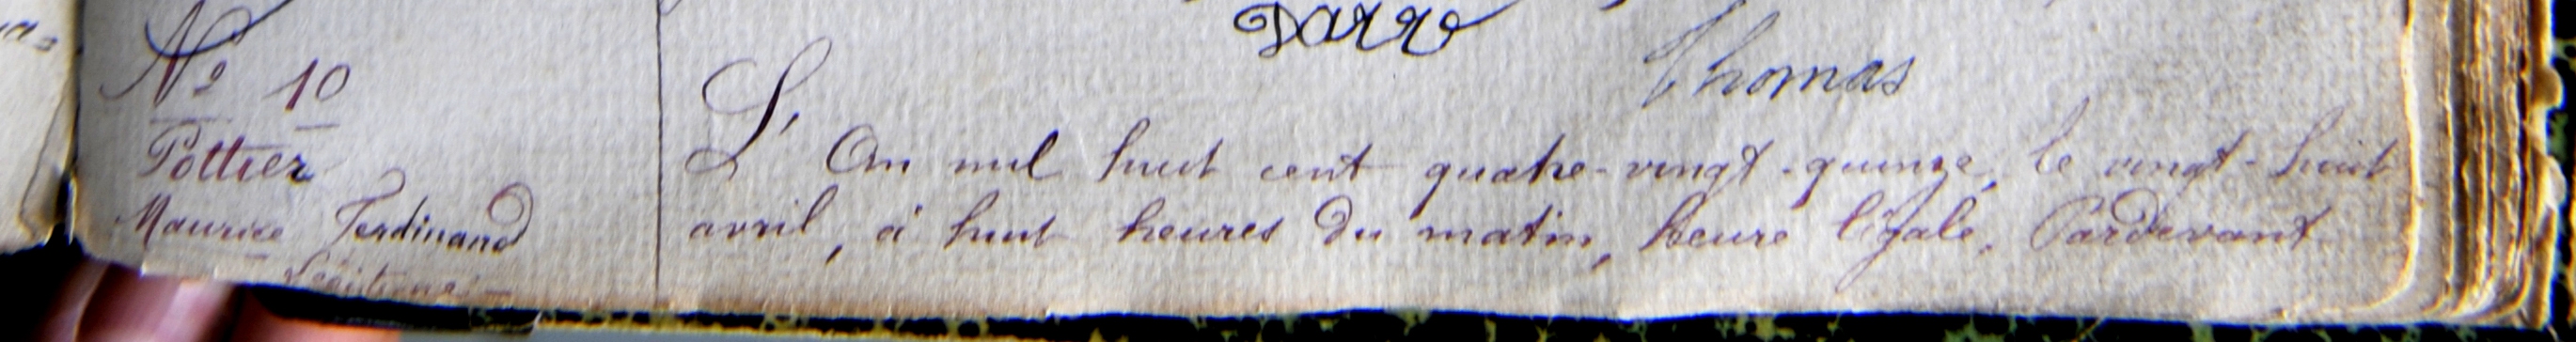 Darro
Thomas
Nº 10
Pottier
Maurice Ferdinand
Légitime
L'An mil huit cent quatre-vingt-quinze, le vingt-huit
avril, à huit heures du matin, heure légale, Pardevant